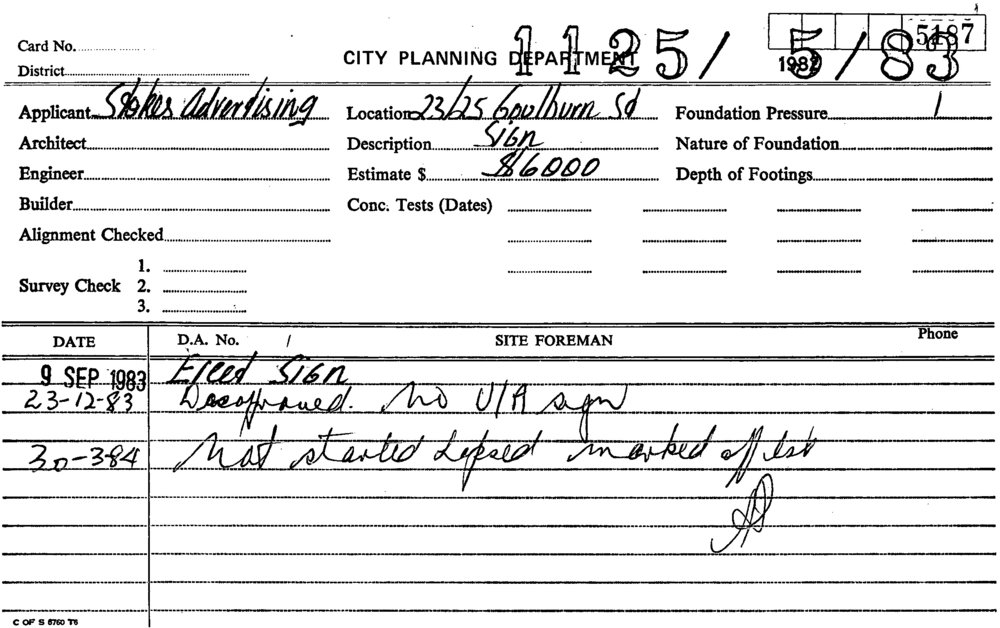 5187
Card No.
CITY PLANNING DEPARTMENT
1125/ 5/83
1982
District
Applicant Stokes Advertising Location 23/25 Goulburn St Foundation Pressure
Architect Description Sign Nature of Foundation
Engineer Estimate $ $6000 Depth of Footings
Builder Conc. Tests (Dates)
Alignment Checked
1.
Survey Check 2.
3.
DATE D.A. No. / SITE FOREMAN Phone
9 SEP 1983 Erect Sign
23-12-83 Disapproved. No U/A sign
30-3-84 Not started Lapsed marked off list
C OF S 6760 T6